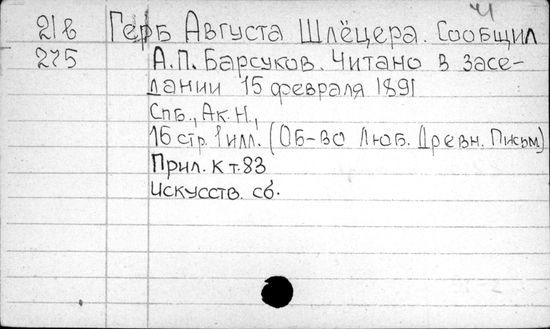 21в Герб Августа Шлёцера. Сообщил
275 А.П. Барсуков. Читано в засе-
дании 15 февраля 1891
Спб., Ак. Н.,
16 стр. 1 илл. (Об-во Люб. Древн. Письм)
Прил. к т.83
Искусств. сб.